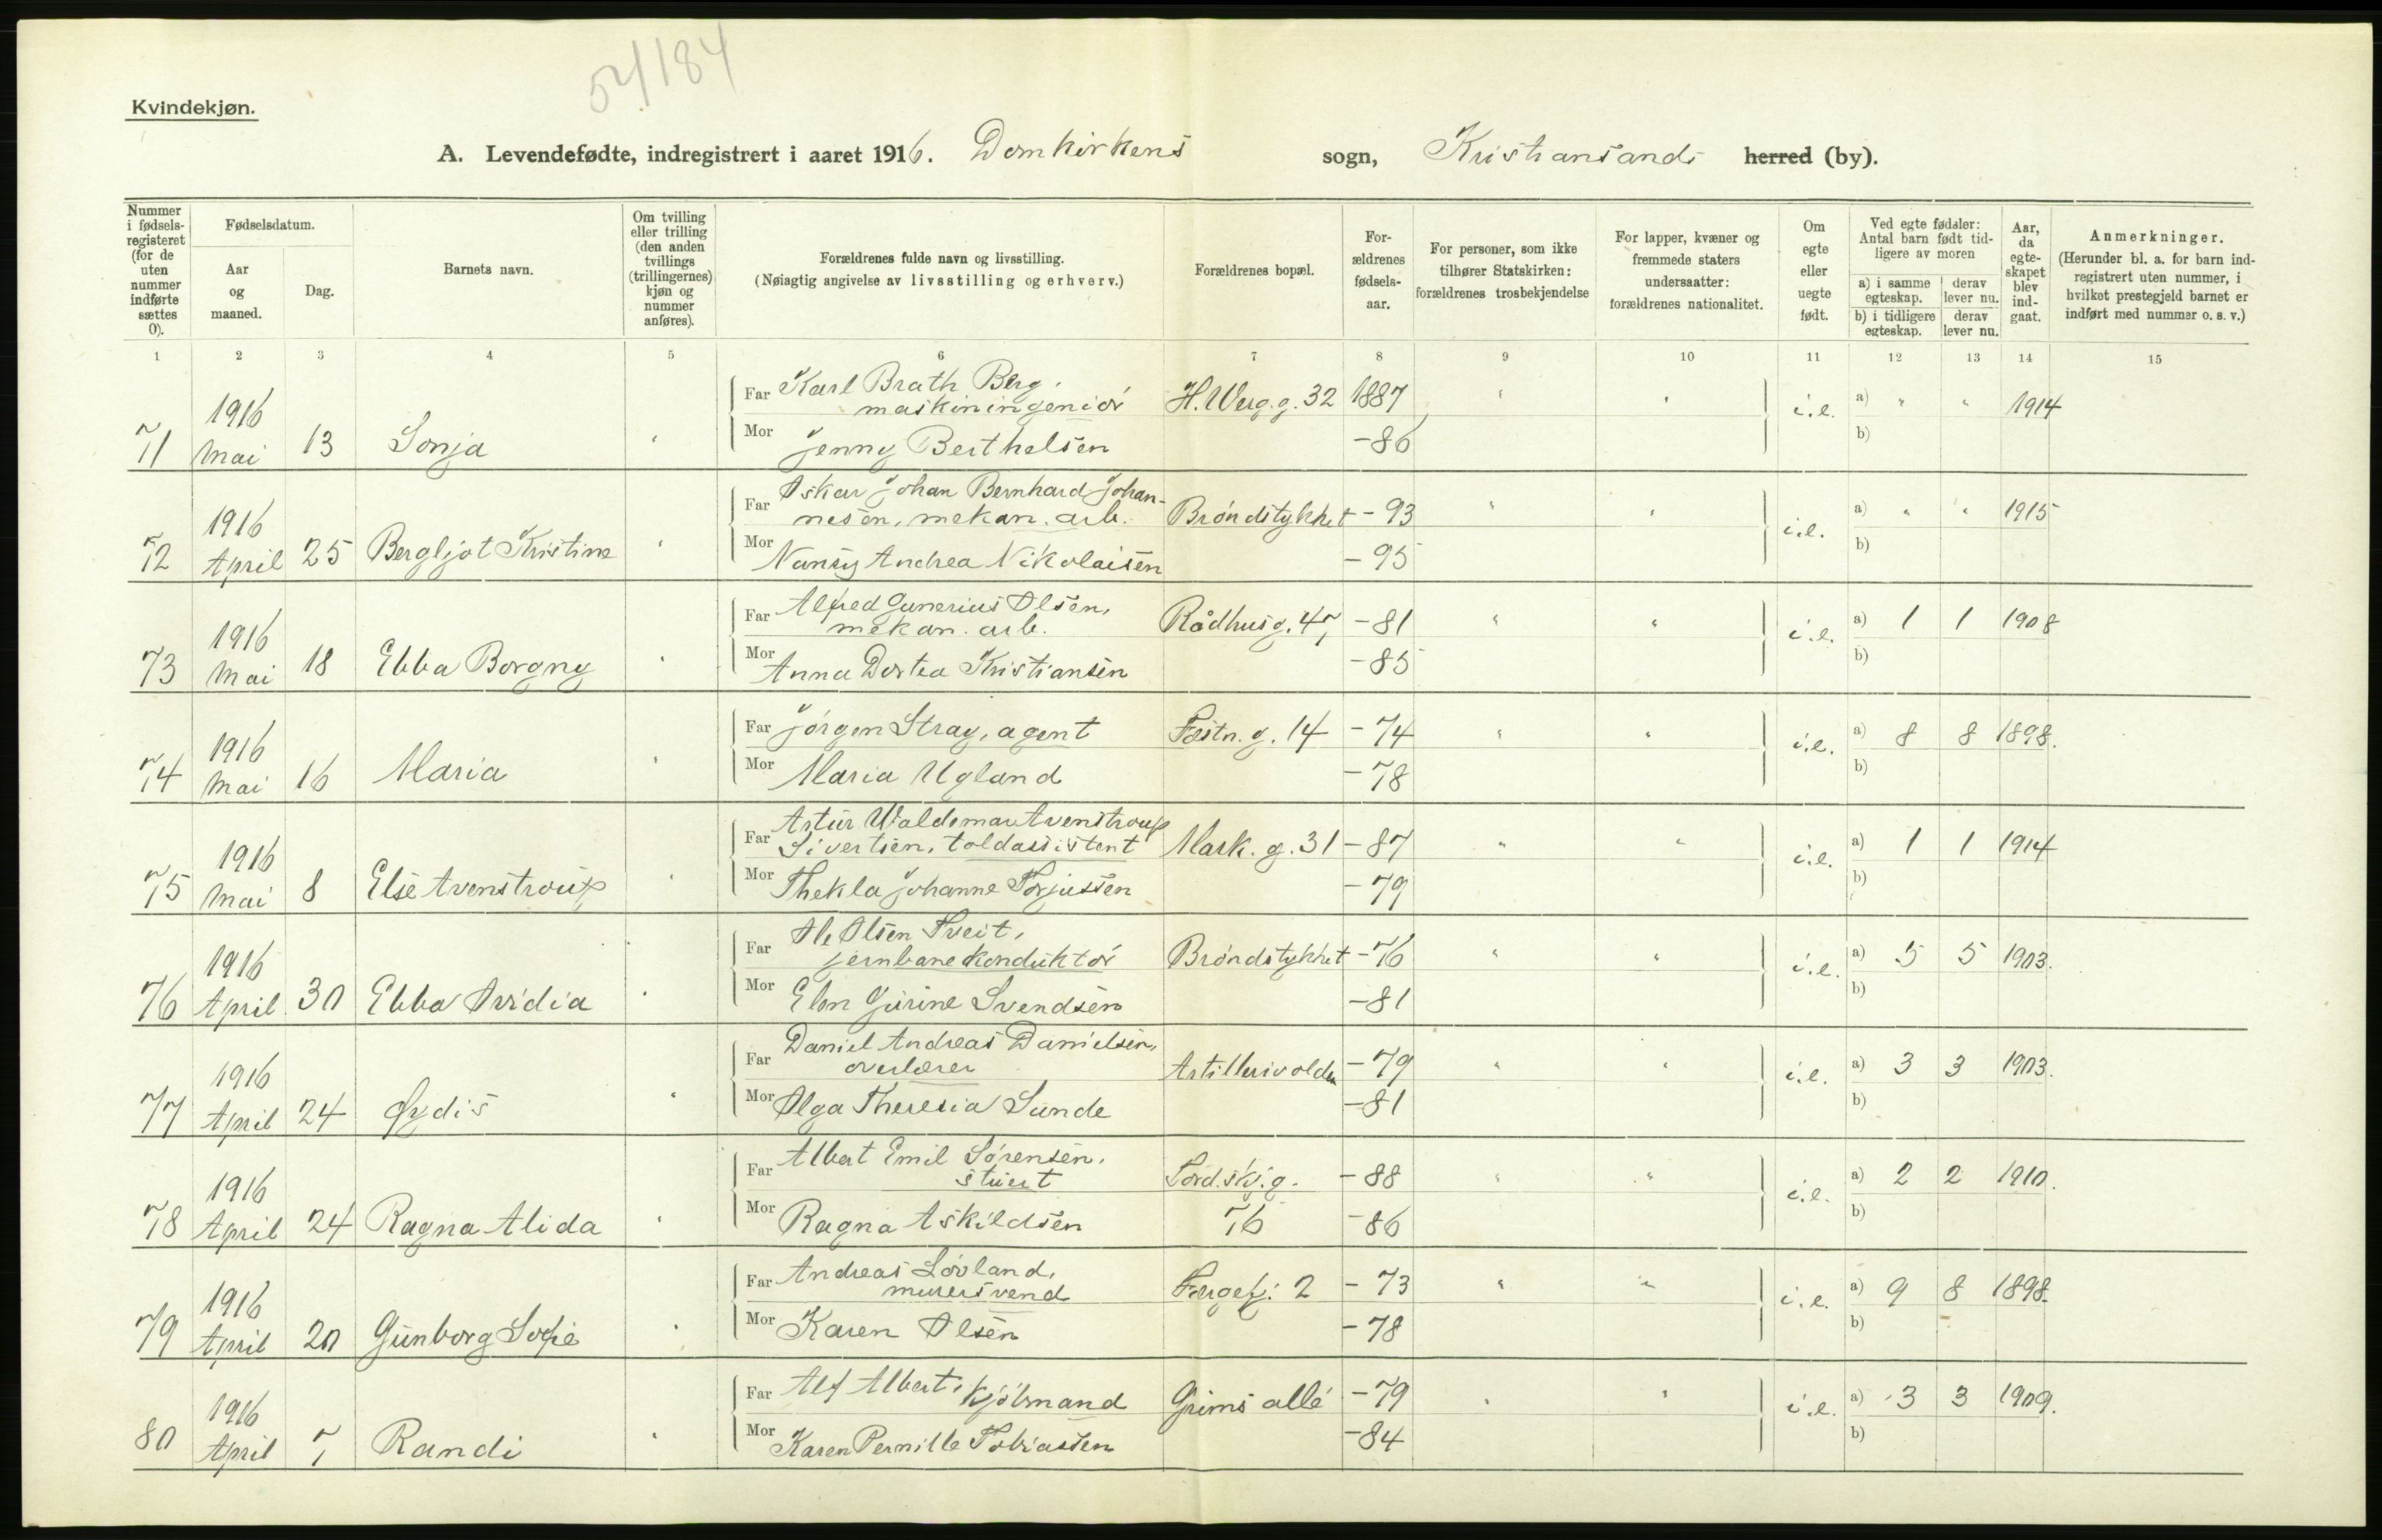 54/184
Kvindekjøn.
A. Levendefødte, indregistrert i aaret 1916. Domkirkens sogn, Kristiansands herred (by).
Nummer i fødsels-registeret (for de uten nummer indførte sættes 0).
Fødselsdatum.
Aar og maaned.
Dag.
Barnets navn.
Om tvilling eller trilling (den anden tvillings (trillingernes) kjøn og nummer anføres).
Forældrenes fulde navn og livsstilling.
(Nøiagtig angivelse av livsstilling og erhverv.)
Forældrenes bopæl.
For-ældrenes fødsels-aar.
For personer, som ikke tilhører Statskirken: forældrenes trosbekjendelse
For lapper, kvæner og fremmede staters undersaatter: forældrenes nationalitet.
Om egte eller uegte født.
Ved egte fødsler: Antal barn født tid-ligere av moren
a) i samme egteskap. derav lever nu.
b) i tidligere egteskap. derav lever nu.
Aar, da egte-skapet blev ind-gaat.
Anmerkninger.
(Herunder bl. a. for barn ind-registrert uten nummer, i hvilket prestegjeld barnet er indført med nummer o. s. v.)
1 2 3 4 5 6 7 8 9 10 11 12 13 14 15
Far Karl Brath Berg, H. Werg. g. 32 1887 " "
1916 maskiningeniør i.e. a) " " 1914
71 Mai 13 Sonja " Mor Jenny Berthelsen -86 b)
Far Oskar Johan Bernhard Johan-
1916 nesen, mekan. arb. Brøndstykket -93 " " i.e. a) " " 1915
72 April 25 Bergljot Kristine " Mor Nansy Andrea Nikolaisen -95 b)
Far Alfred Gunerius Olsen,
1916 mekan. arb. Rådhusg. 47, -81 " " i.e. a) 1 1 1908
73 Mai 18 Ebba Borgny " Mor Anna Dortea Kristiansen -85 b)
1916 Far Jørgen Stray, agent Festn. g. 14 -74 " " i.e. a) 8 8 1898.
74 Mai 16 Maria " Mor Maria Ugland -78 b)
Far Artur Waldemar Avenstroup
1916 Sivertsen, toldassistent Mark. g. 31 -87 " " i.e. a) 1 1 1914
75 Mai 8 Else Avenstroup " Mor Thekla Johanne Torjussen -79 b)
Far Ole Olsen Tveit,
1916 jernbanekonduktør Brøndstykket -76 " " i.e. a) 5 5 1903.
76 April 30 Ebba Ovidia " Mor Elen Gurine Svendsen -81 b)
Far Daniel Andreas Danielsen,
1916 overlærer Artillerivolden -79 " " i.e. a) 3 3 1903.
77 April 24 Øydis " Mor Olga Theresia Sunde -81 b)
Far Albert Emil Sørensen,
1916 stuert Tord.skj. g. -88 " " i.e. a) 2 2 1910.
78 April 24 Ragna Alida " Mor Ragna Askildsen 76 -86 b)
Far Andreas Løvland,
1916 murersvend Fergefj: 2 -73 " " i.e. a) 9 8 1898.
79 April 20 Gunborg Sofie " Mor Karen Olsen -78 b)
1916 Far Alf Albert Kjølmand Grims allé -79 " " i.e. a) 3 3 1909.
80 April 7 Randi " Mor Karen Pernille Tobiassen -84 b)